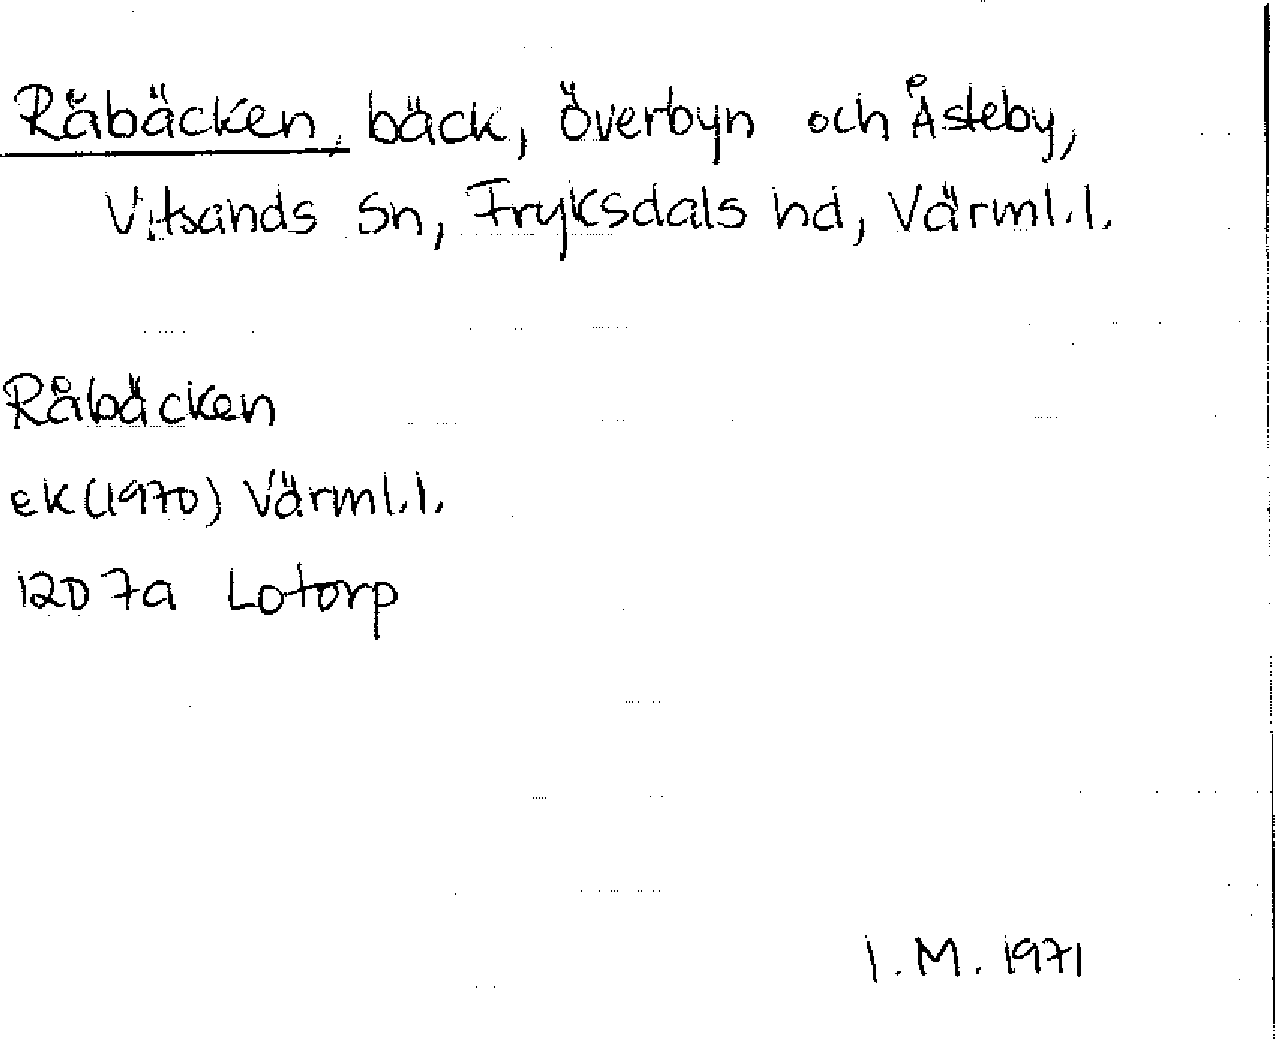 Råbäcken, bäck, Överbyn och Åsteby,
Vitsands sn, Fryksdals hd, Värml.l.
Råbäcken
ek (1970) Värml.l.
12D 7a Lotorp
I.M. 1971